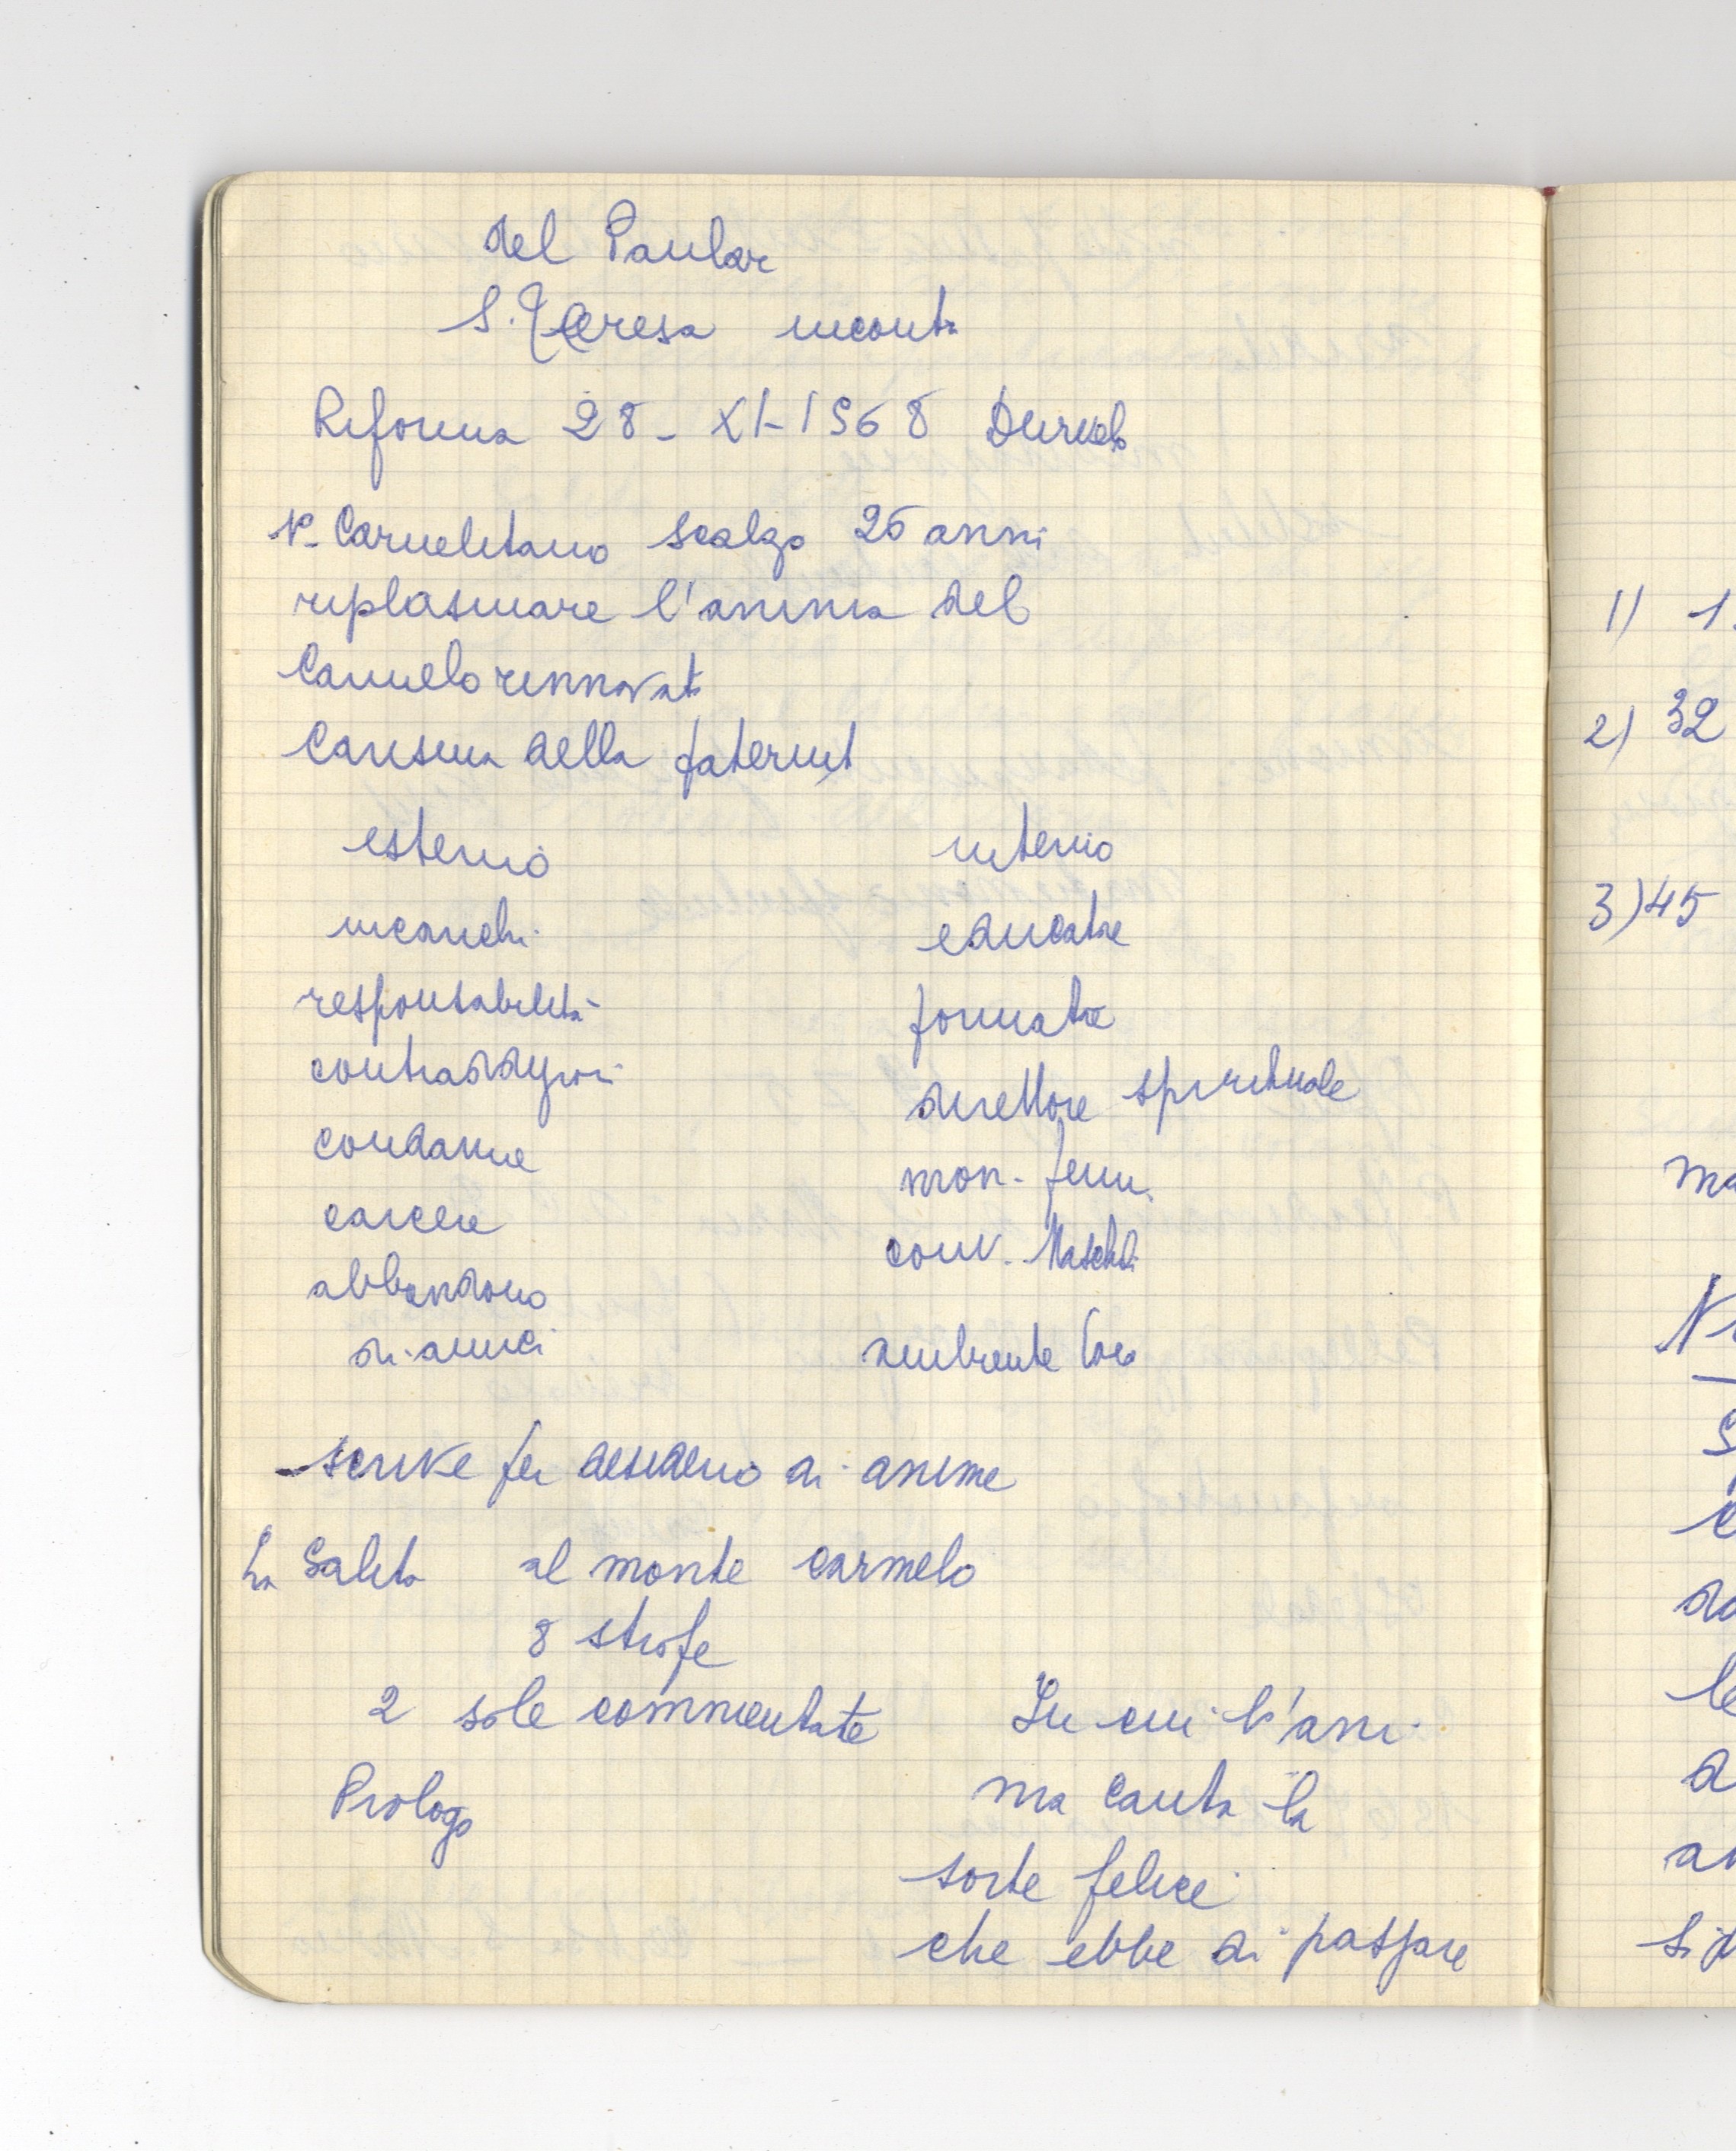 del Paular
S. Teresa incontr
Riforma 28 - XI - 1568 Duruelo
1º Carmelitano scalzo 26 anni
riplasmare l'anima del
Carmelo rinnovato
Carisma della paternit
esterno interno
incarichi educatore
responsabilità formatore
contraddizioni direttore spirituale
condanne mon. femm.
carcere conv. Maschili
abbandono
di amici ambiente
- scrive per desiderio di anime
La Salita al monte carmelo
8 strofe
2 sole commentate In cui l'ani
Prologo ma canta la
sorte felice
che ebbe di passare
1) 1.
2) 32
3) 45